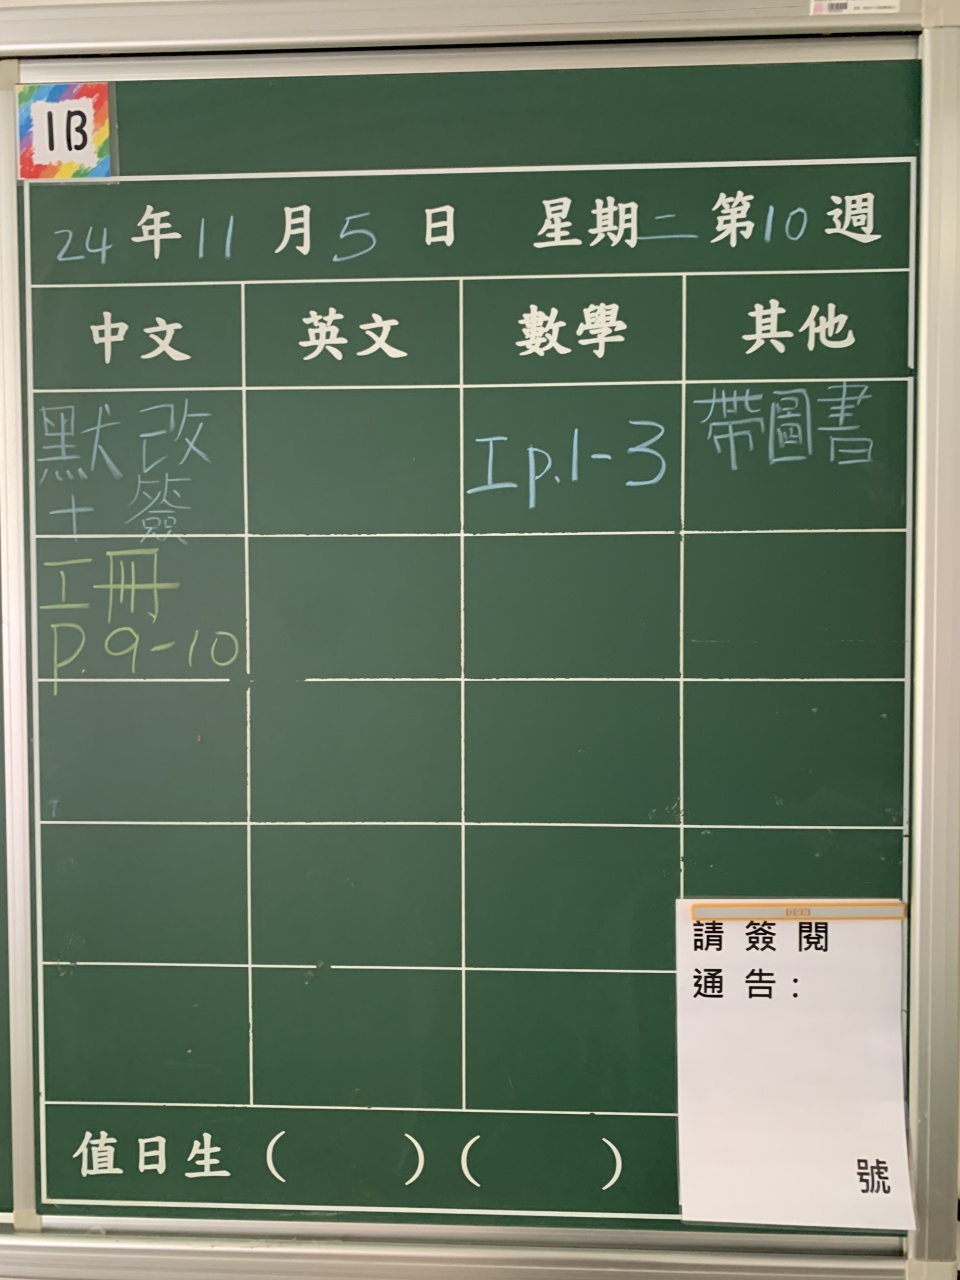 1B
24年11月5日 星期二第10週
中文 英文 數學 其他
默改
+簽
Ip.1-3
帶圖書
工冊
P.9-10
請簽閱
通告:
號
值日生( )( )